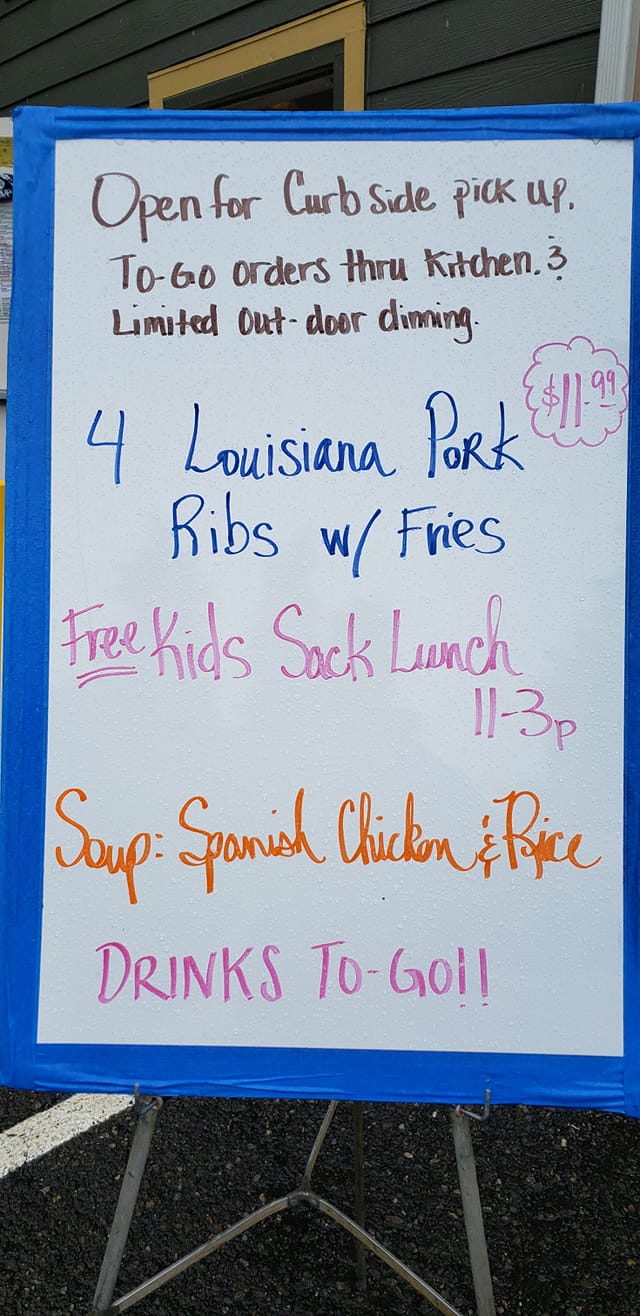 Open for Curb side pick up.
To-Go orders thru Kitchen. &
Limited Out-door dinning.
$11.99
4 Louisiana Pork
Ribs w/ Fries
Free Kids Sack Lunch
11-3p
Soup: Spanish Chicken & Rice
DRINKS TO-GO!!